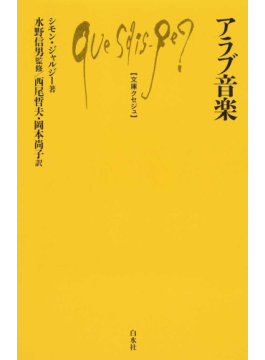 アラブ音楽
シモン・ジャルジー著
水野信男監修/西尾哲夫・岡本尚子訳
Que sais-je?
【文庫クセジュ】
白水社